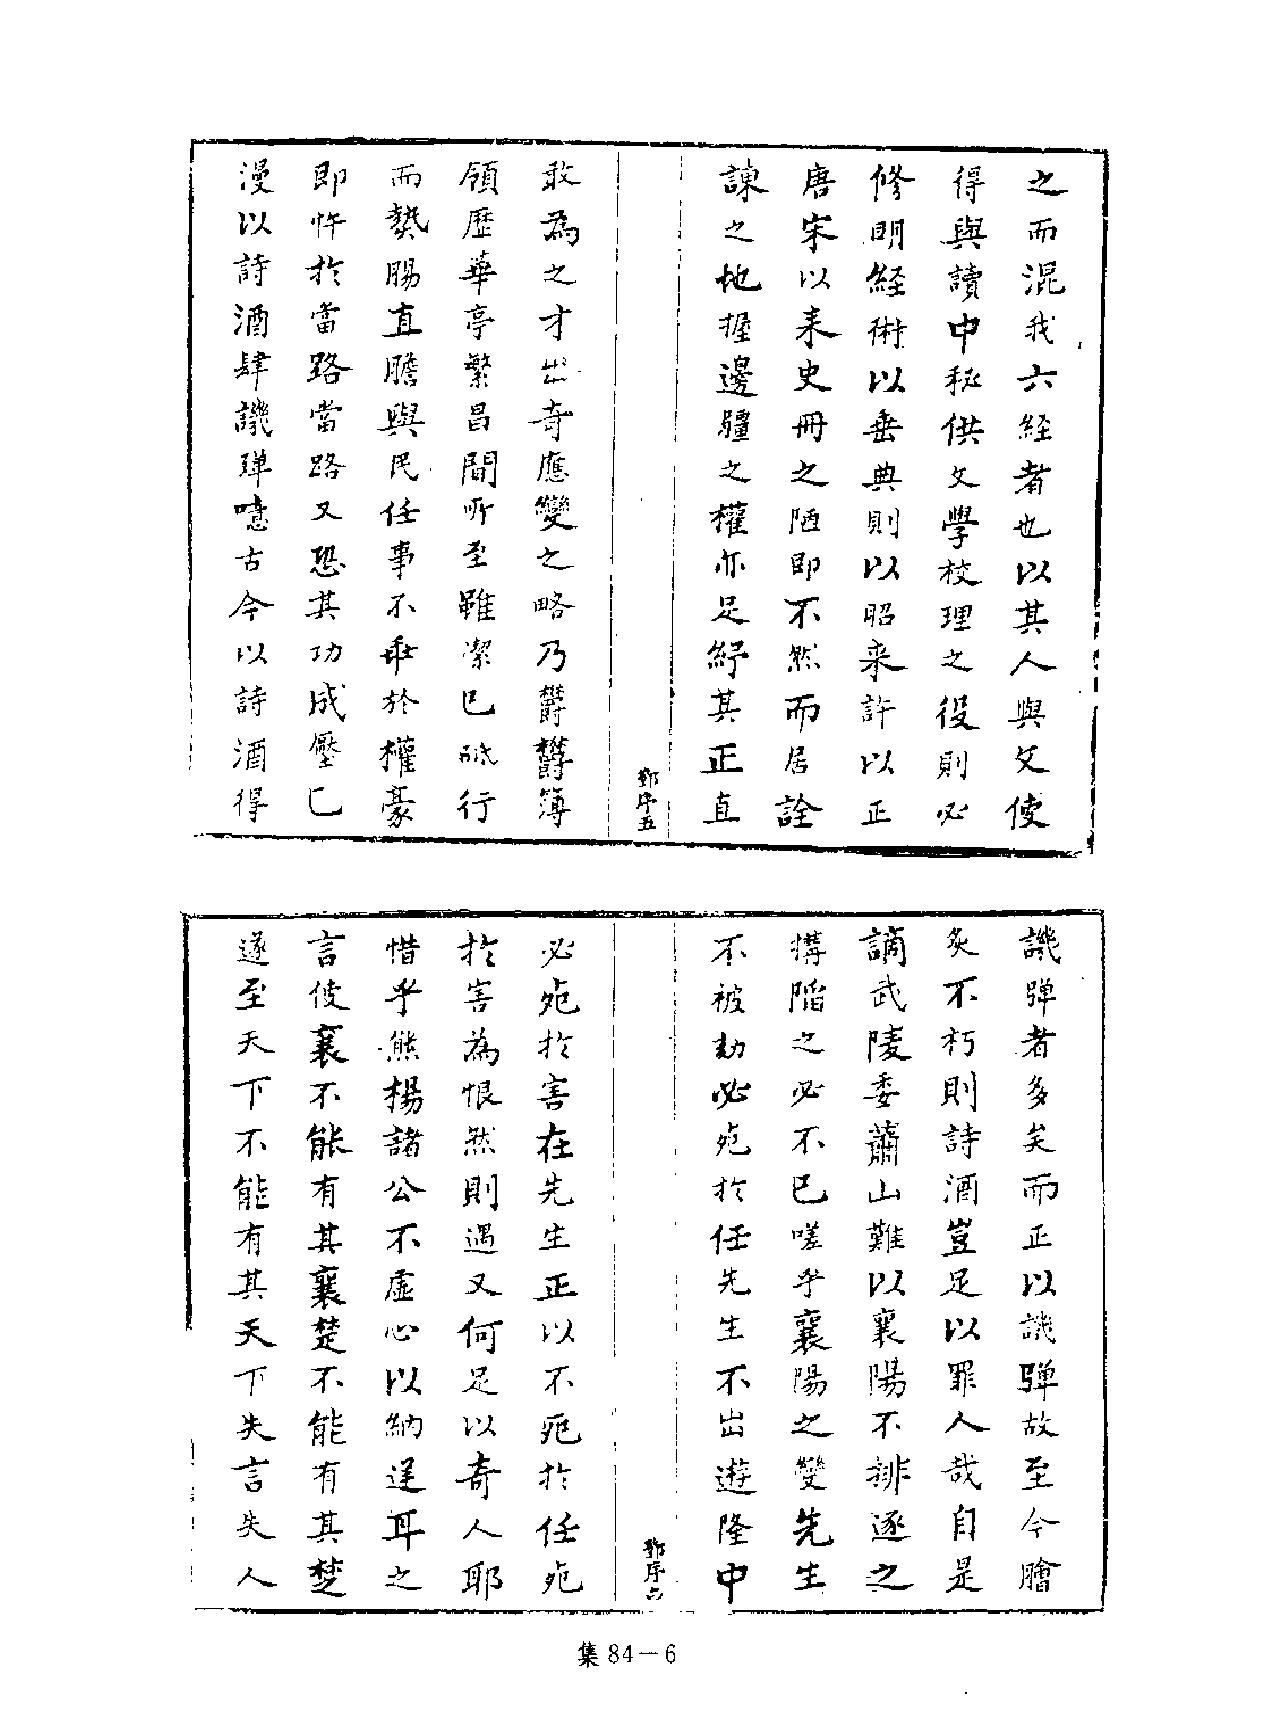 之而混我六経者也以其人與文使
得與讀中秘供文學校理之役則必
修明経術以垂典則以昭来許以正
唐宋以来史冊之陋即不然而居詮
諫之地握邊疆之權亦足紓其正直
鄧序五
敢為之才出奇應變之略乃欝欝簿
領歴華亭繁昌間所至雖潔已砥行
而熱腸直膽與民任事不乖於權豪
即忤扵當路當路又恐其功成壓已
漫以詩酒肆譏彈噫古今以詩酒得
譏彈者多矣而正以譏彈故至今膾
炙不朽則詩酒豈足以罪人哉自是
謫武陵委蕭山難以襄陽不排逐之
搆䧟之必不已嗟乎襄陽之變先生
不被劾必死扵任先生不出遊隆中
鄧序六
必死扵害在先生正以不死扵任死
扵害為恨然則遇又何足以奇人耶
惜乎熊楊諸公不虛心以納逆耳之
言使襄不能有其襄楚不能有其楚
遂至天下不能有其天下失言失人
集84－6